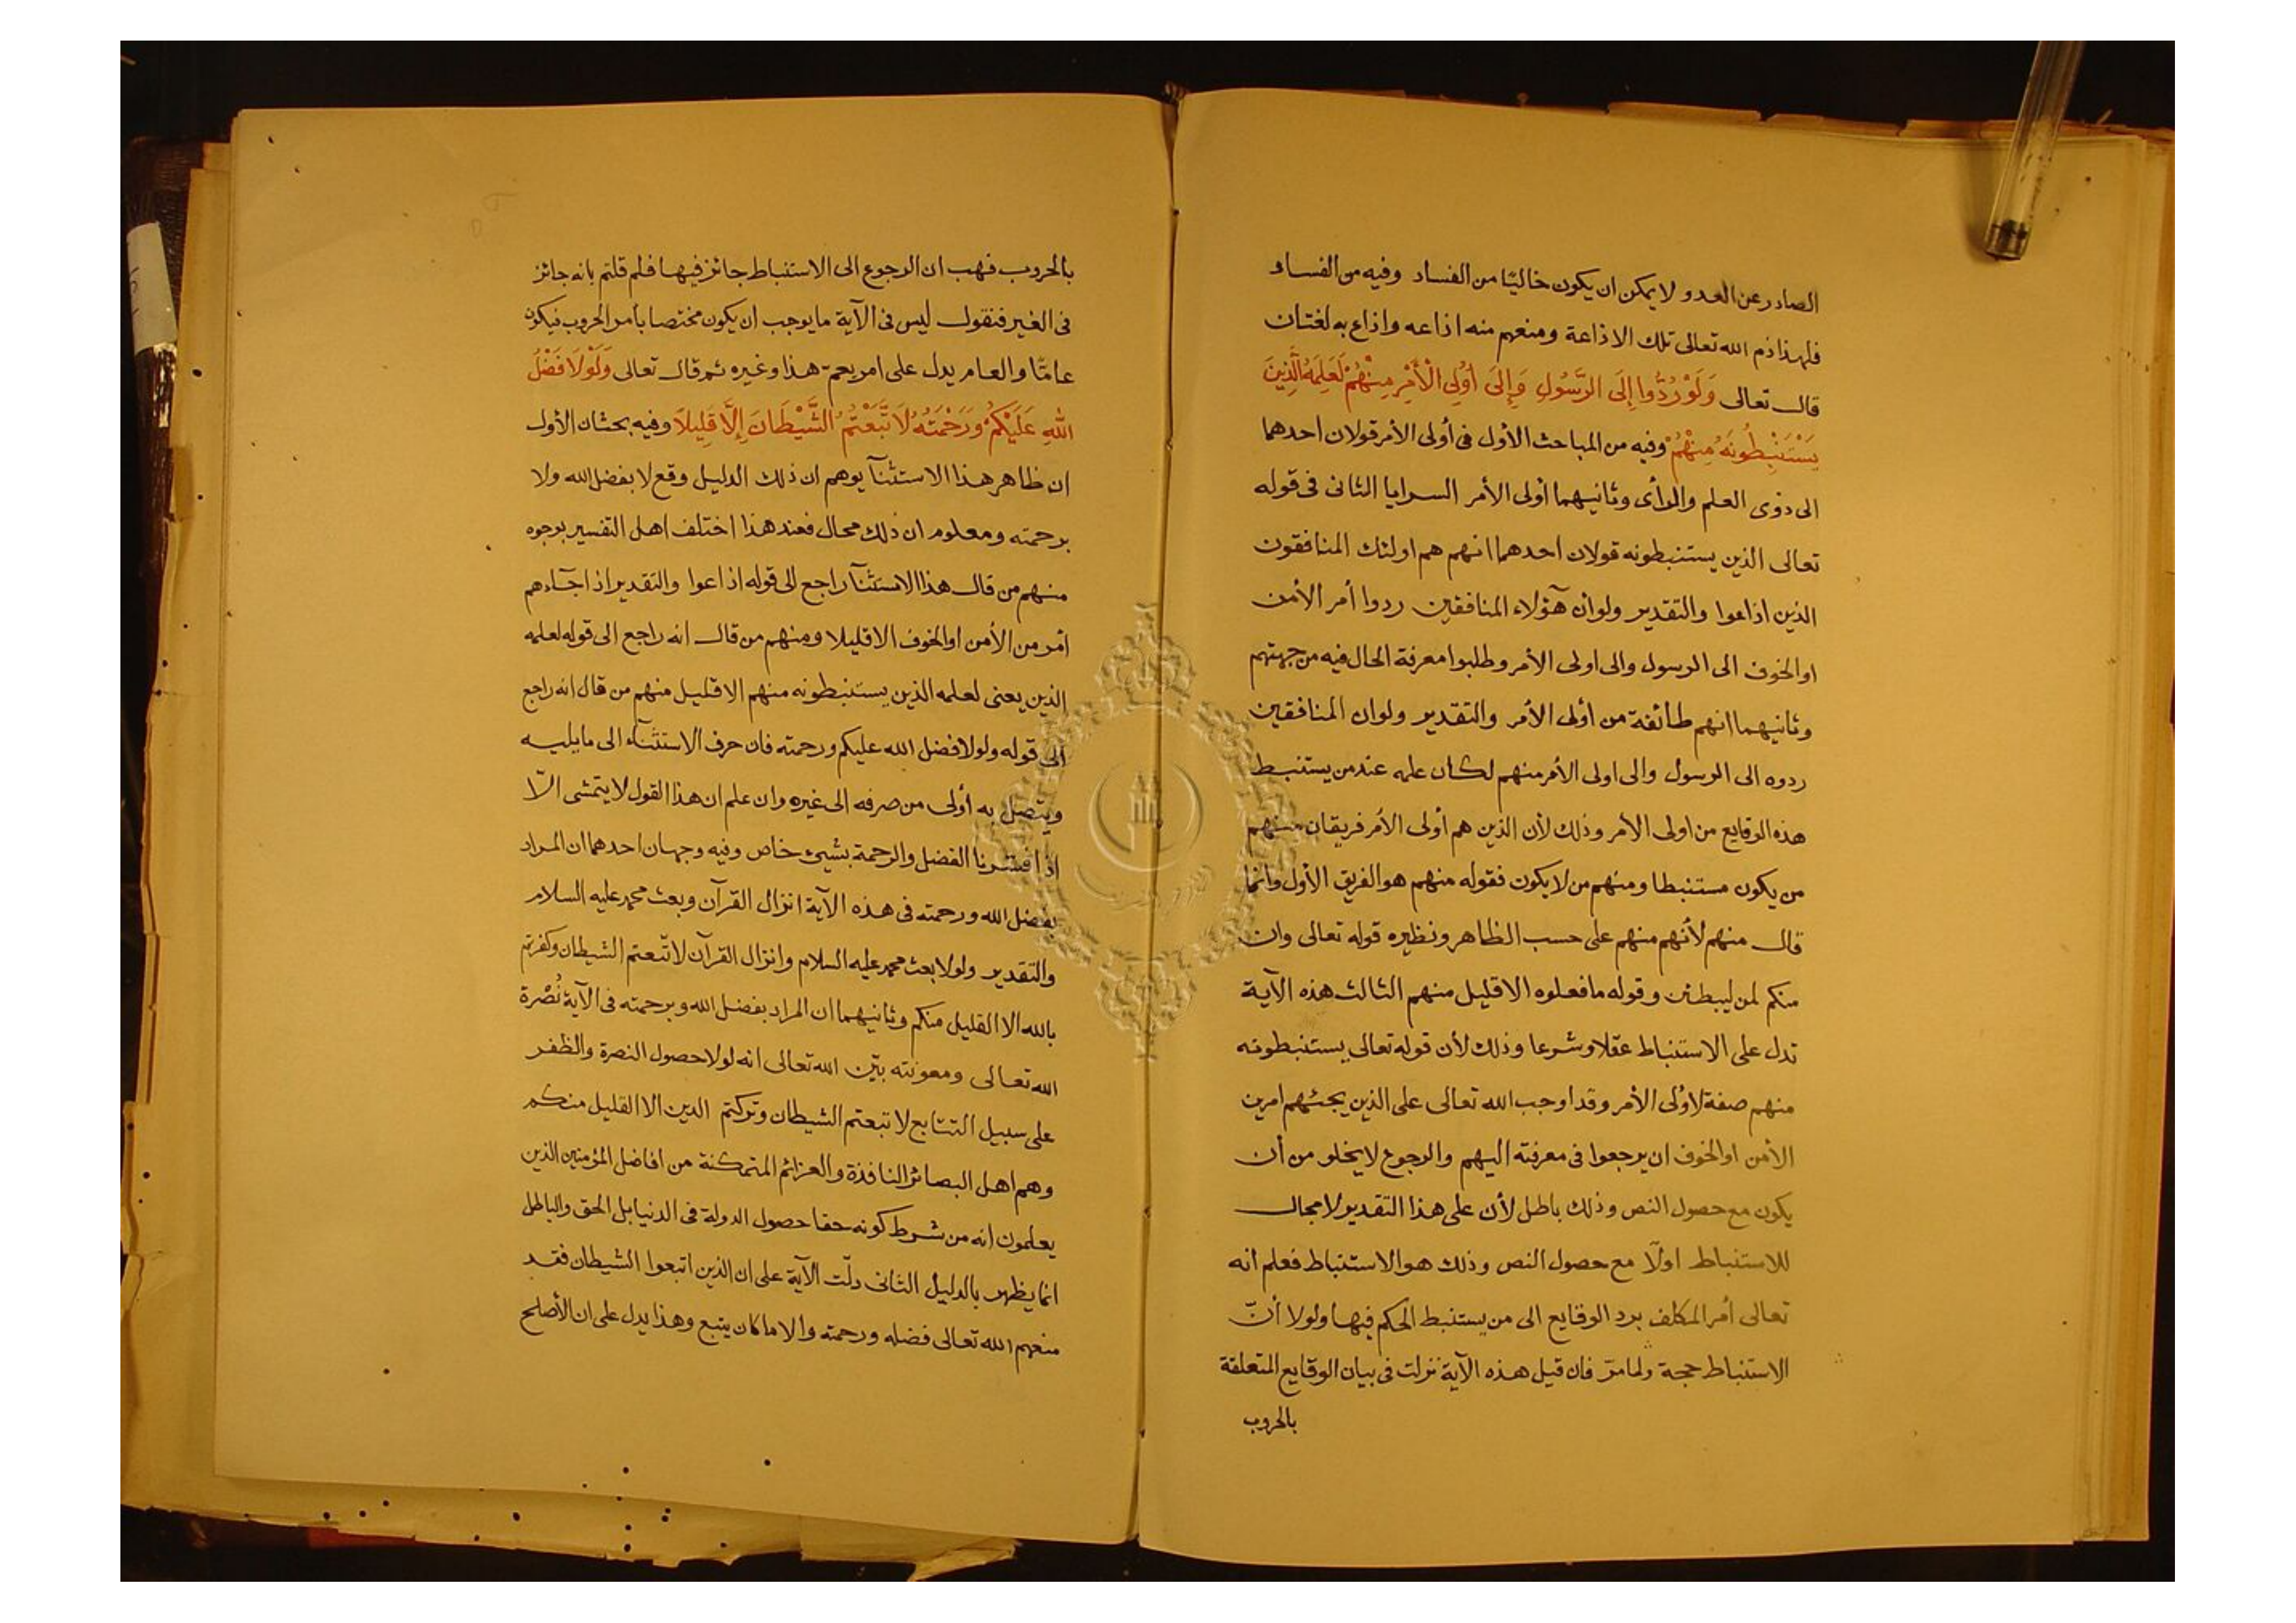 الصادر عن العدو لا يمكن ان يكون خاليًا من الفساد وفيه من الفساد
فلهذا ذم الله تعالى تلك الاذاعة ومنعهم منه اذاعه واذاع به لغتان
قال تعالى وَلَوْ رُدُّوا إِلَى الرَّسُولِ وَإِلَى أُولِى الْأَمْرِ مِنْهُمْ لَعَلِمَهُ الَّذِينَ
يَسْتَنْبِطُونَهُ مِنْهُمْ وفيه من المباحث الأول فى أولى الأمر قولان احدهما
الى ذوى العلم والرأى وثانيهما أولى الأمر السرايا الثانى فى قوله
تعالى الذين يستنبطونه قولان احدهما انهم هم اولئك المنافقون
الذين اذاعوا والتقدير ولو ان هؤلاء المنافقين ردوا أمر الأمن
او الخوف الى الرسول والى اولى الأمر وطلبوا معرفة الحال فيه من جهتهم
وثانيهما انهم طائفة من أولى الأمر والتقدير ولو ان المنافقين
ردوه الى الرسول والى اولى الأمر منهم لكان علمه عند من يستنبط
هذه الوقايع من اولى الأمر وذلك لأن الذين هم أولى الأمر فريقان منهم
من يكون مستنبطا ومنهم من لا يكون فقوله منهم هو الفريق الأول وانما
قال منهم لأنهم منهم على حسب الظاهر ونظيره قوله تعالى وان
منكم لمن ليبطئن وقوله ما فعلوه الا قليل منهم الثالث هذه الآية
تدل على الاستنباط عقلا وشرعا وذلك لأن قوله تعالى يستنبطونه
منهم صفة لأولى الأمر وقد اوجب الله تعالى على الذين يجئهم امرين
الأمن او الخوف ان يرجعوا فى معرفته اليهم والرجوع لا يخلو من أن
يكون مع حصول النص وذلك باطل لأن على هذا التقدير لا مجال
للاستنباط اولًا مع حصول النص وذلك هو الاستنباط فعلم انه
تعالى أمر المكلف برد الوقايع الى من يستنبط الحكم فيها ولولا أنّ
الاستنباط حجة ولما مرّ فان قيل هذه الآية نزلت فى بيان الوقايع المتعلقة
بالحروب
بالحروب فهب ان الرجوع الى الاستنباط جائز فيها فلم قلتم بانه جائز
فى الغير فنقول ليس فى الآية ما يوجب ان يكون مختصا بأمر الحروب فيكون
عامًّا والعام يدل على امر يعم هذا وغيره ثم قال تعالى وَلَوْلَا فَضْلُ
اللهِ عَلَيْكُمْ وَرَحْمَتُهُ لَاتَّبَعْتُمُ الشَّيْطَانَ إِلَّا قَلِيلًا وفيه بحثان الأول
ان ظاهر هذا الاستثنآ يوهم ان ذلك الدليل وقع لا بفضل الله ولا
برحمته ومعلوم ان ذلك محال فعند هذا اختلف اهل التفسير بوجوه
منهم من قال هذا الاستثنآ راجع الى قوله اذاعوا والتقدير اذا جآءهم
أمر من الأمن او الخوف الا قليلا ومنهم من قال انه راجع الى قوله لعلمه
الذين يعنى لعلمه الذين يستنبطونه منهم الا قليل منهم من قال انه راجع
الى قوله ولولا فضل الله عليكم ورحمته فان حرف الاستثنآء الى ما يليه
ويتصل به أولى من صرفه الى غيره وان علم ان هذا القول لا يتمشى الّا
اذا فسّرنا الفضل والرحمة بشىء خاص وفيه وجهان احدهما ان المراد
بفضل الله ورحمته فى هذه الآية انزال القرآن وبعث محمد عليه السلام
والتقدير ولولا بعث محمد عليه السلام وانزال القرآن لاتّبعتم الشيطان وكفرتم
بالله الا القليل منكم وثانيهما ان المراد بفضل الله وبرحمته فى الآية نُصْرة
الله تعالى ومعونته بيّن الله تعالى انه لولا حصول النصرة والظفر
على سبيل التتابع لاتبعتم الشيطان وتركتم الدين الا القليل منكم
وهم اهل البصائر النافذة والعزائم المتمكنة من افاضل المؤمنين الذين
يعلمون انه من شرط كونه حقا حصول الدولة فى الدنيا بل الحق والباطل
انما يظهر بالدليل الثانى دلّت الآية على ان الذين اتبعوا الشيطان فقد
منعهم الله تعالى فضله ورحمته والا ما كان يتبع وهذا يدل على ان الأصلح